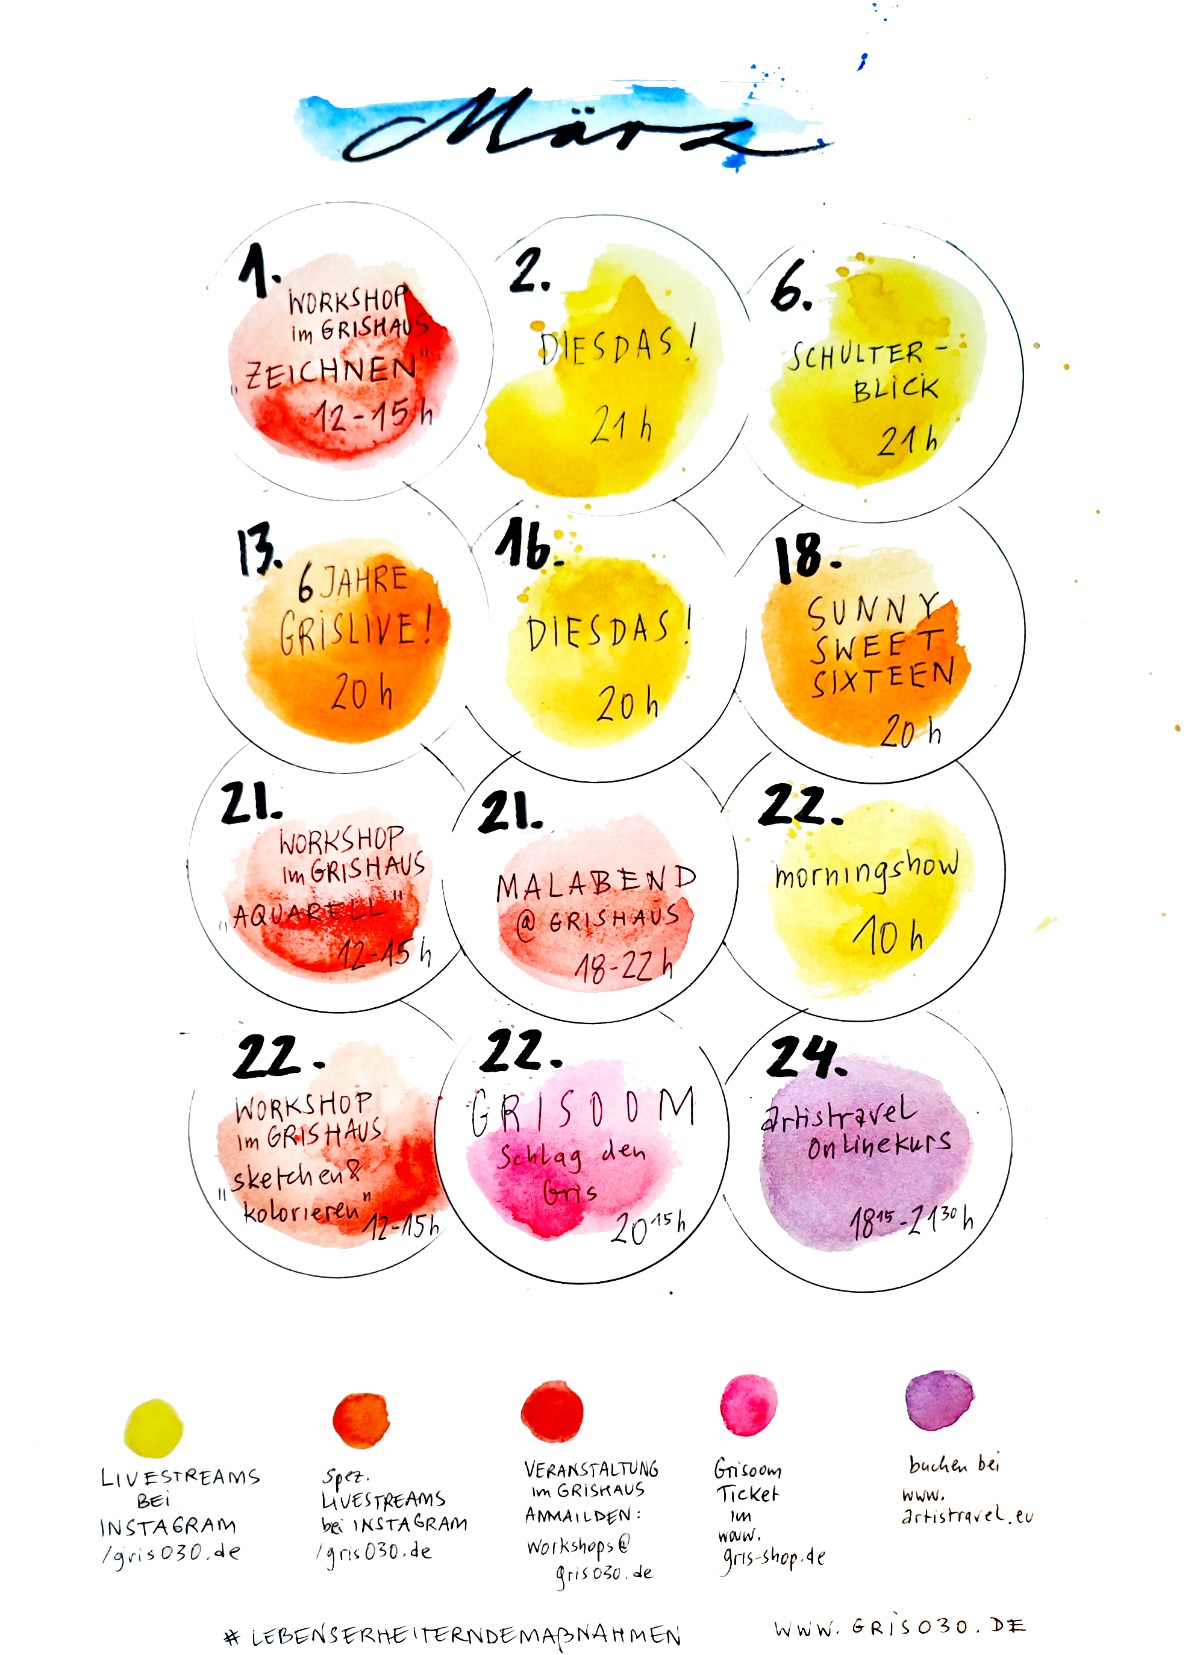 März
1.
WORKSHOP
im GRISHAUS
„ZEICHNEN"
12-15h
2.
DIESDAS!
21h
6.
SCHULTER-
BLICK
21h
13.
6 JAHRE
GRISLIVE!
20h
16.
DIESDAS!
20h
18.
SUNNY
SWEET
SIXTEEN
20h
21.
WORKSHOP
im GRISHAUS
„AQUARELL"
12-15h
21.
MALABEND
@ GRISHAUS
18-22h
22.
morningshow
10h
22.
WORKSHOP
im GRISHAUS
„sketchen &
kolorieren"
12-15h
22.
GRISOOM
Schlag den
Gris
20¹⁵h
24.
artistravel
onlinekurs
18¹⁵-21³⁰h
LIVESTREAMS
BEI
INSTAGRAM
/gris030.de
Spez.
LIVESTREAMS
bei INSTAGRAM
/gris030.de
VERANSTALTUNG
im GRISHAUS
ANMAILDEN:
workshops@
gris030.de
Grisoom
Ticket
im
www.
gris-shop.de
buchen bei
www.
artistravel.eu
#LEBENSERHEITERNDEMAßNAHMEN
WWW.GRISO30.DE